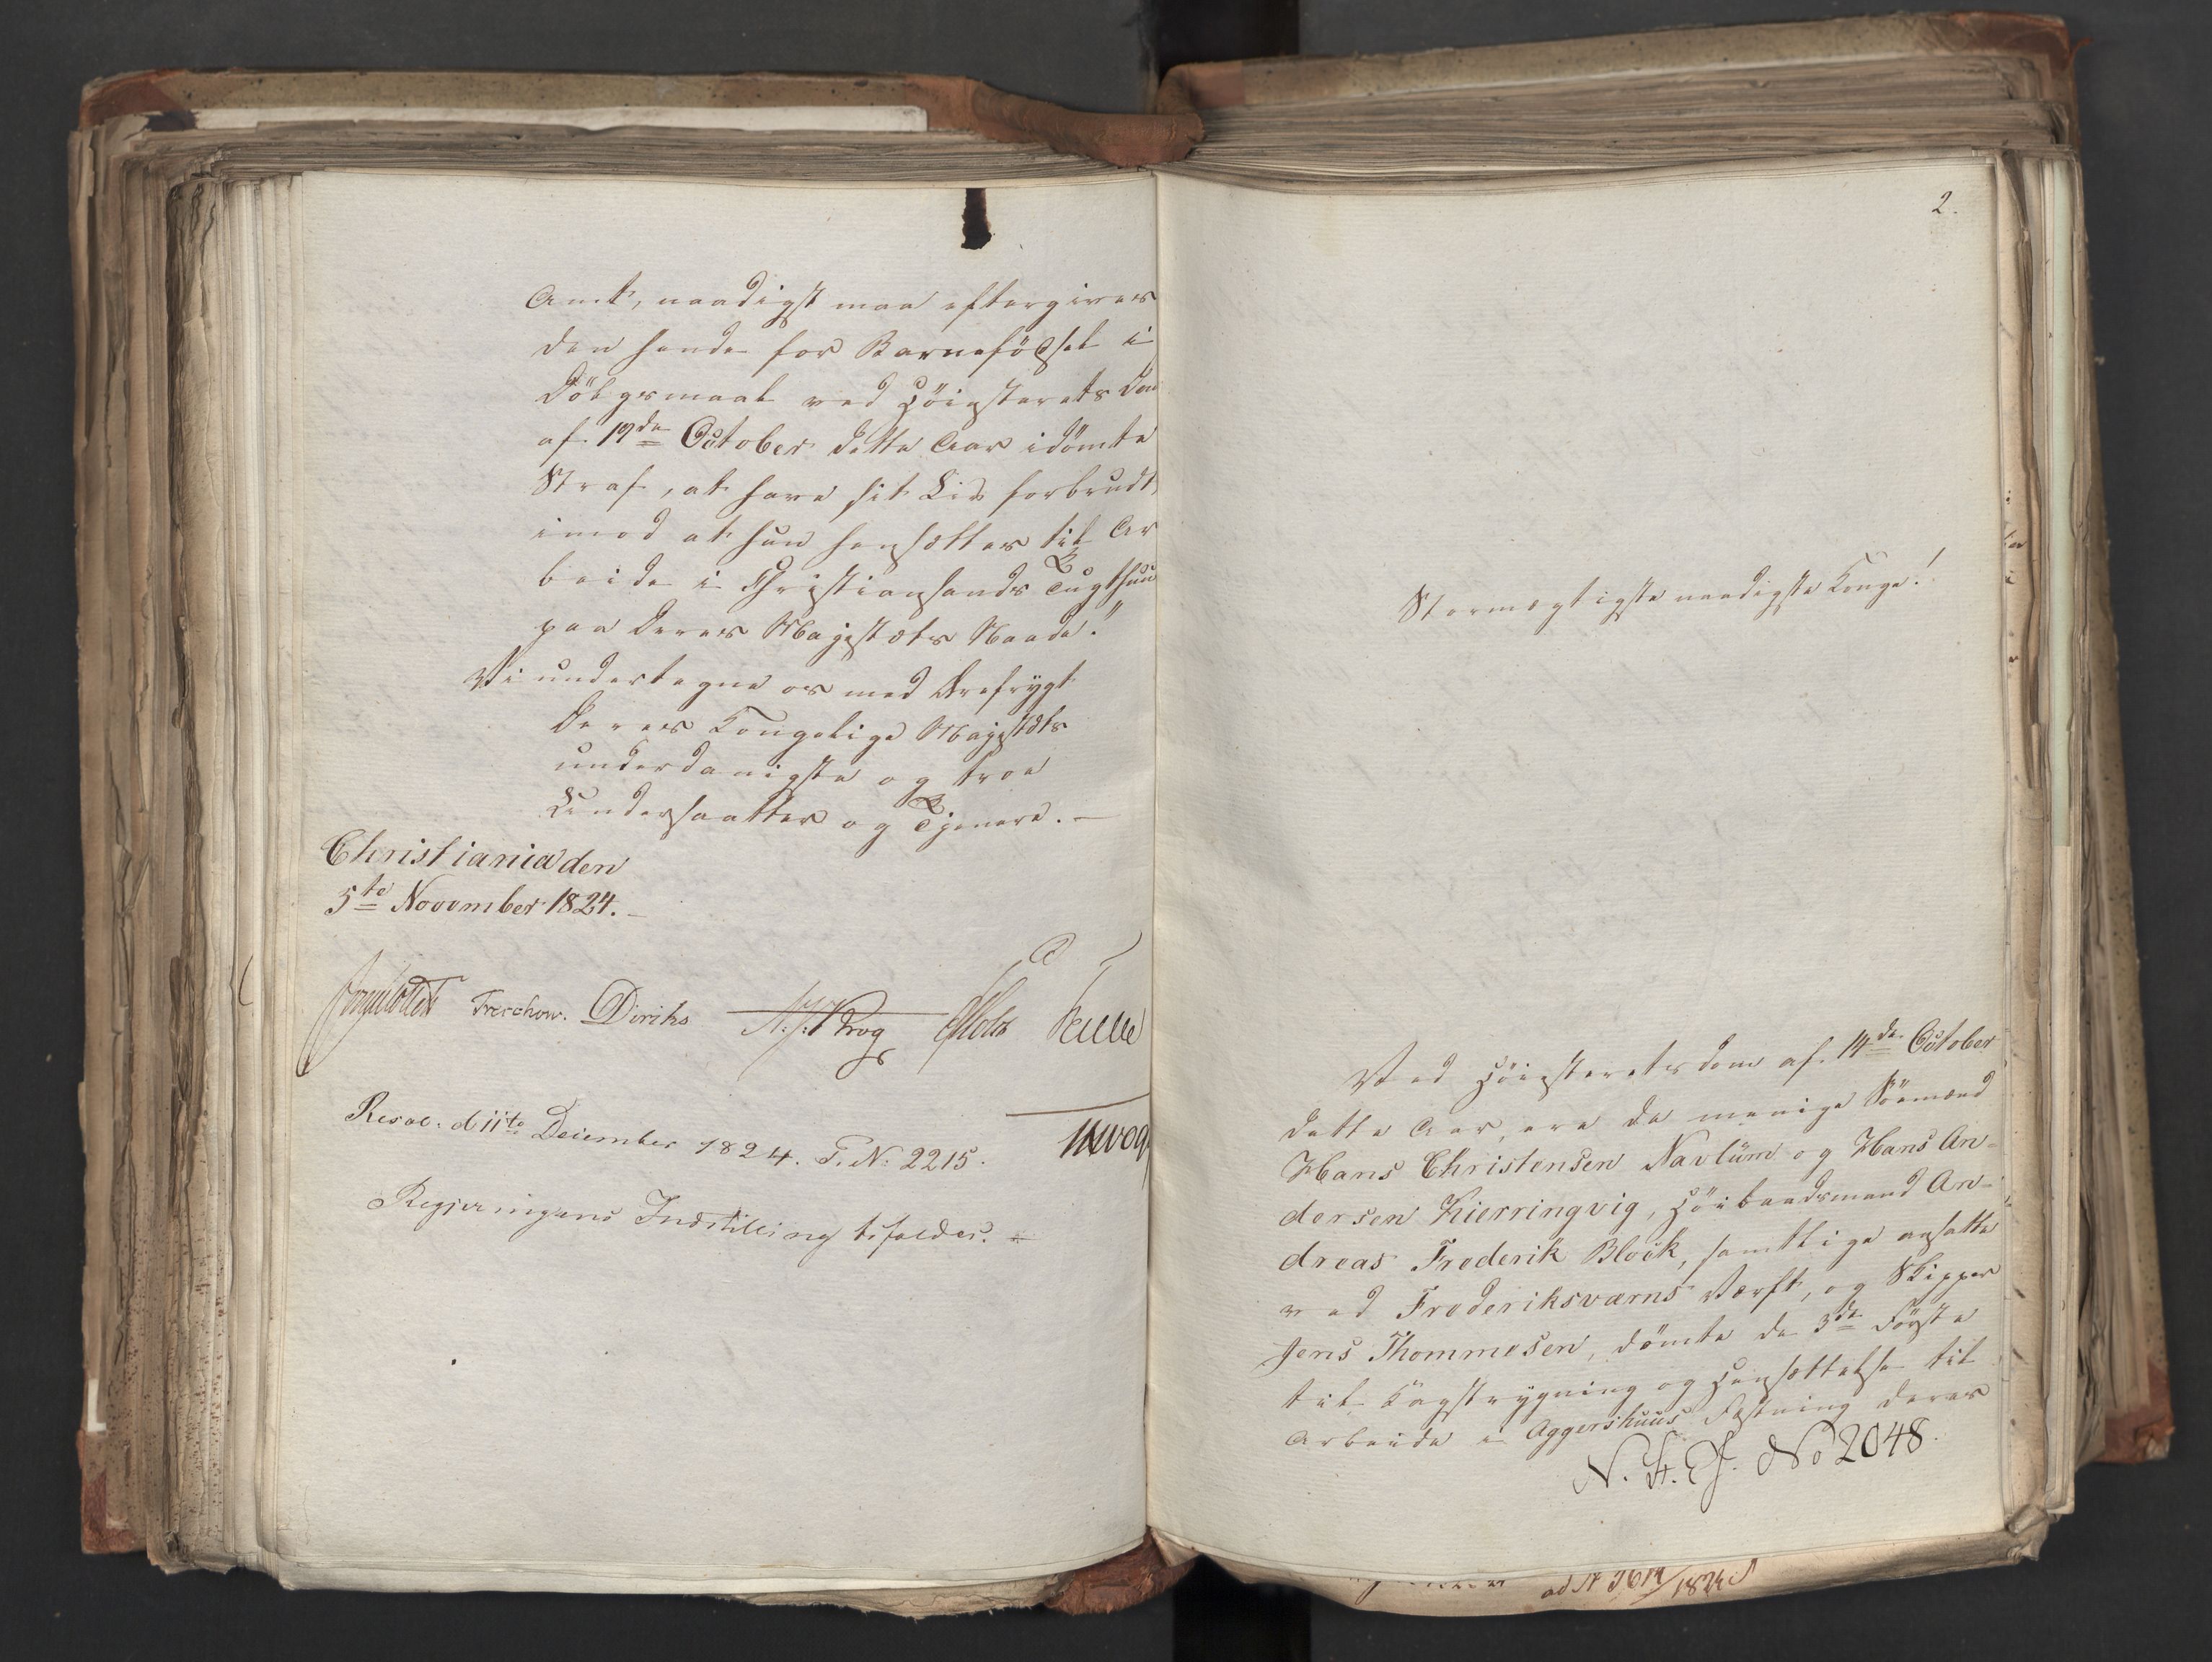 Amt, naadigst maa eftergives
den hende for Barnefödsel i
Dölgsmaal ved Höiesterets Dom
af 19de October dette Aar idömte
Straf, at have sit Liv forbrudt,
imod at hun hensættes til Ar
beide i Christiansands Tugthuus
paa Deres Majestæts Naade."
Vi undertegne os med Ærefrygt
Deres Kongelige Majestæts
underdanigste og troe
Undersaatter og Tjenere. —
Christiania den
5te November 1824. —
Treschow. Diriks Krog
Resol. d 11te December 1824. P. N: 2215.
Regjeringens Indstilling bifaldes.
2.
Stormægtigste naadigste Konge!
Ved Höiesteretsdom af 14de October
dette Aar, ere de menige Sömænd
Hans Christensen Navlüm og Hans An-
dersen Kierringvig, Höibaadsmand An-
dreas Frederik Block, samtlige ansatte
ved Frederiksværns Værft, og Skipper
Jens Thommesen, dömte de 3de Förste
til Kagstrygning og Hensættelse til
Arbeide i Aggershuus Fæstning deres
N. St. E. No 2048.